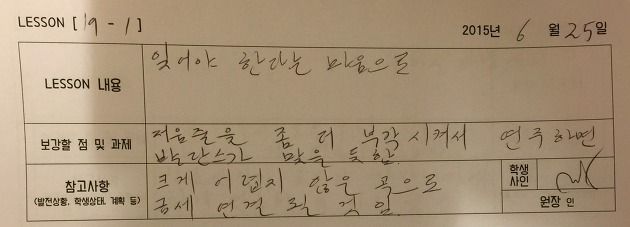 LESSON [19-1] 2015년 6 월 25일
LESSON 내용
잊어야 한다는 마음으로
보강할 점 및 과제
저음줄을 좀 더 부각시켜서 연주하면
발란스가 맞을 듯함.
참고사항
(발전상황, 학생상태, 계획 등)
크게 어렵지 않은 곡으로
금세 연결 될 것임.
학생
사인
원장 인